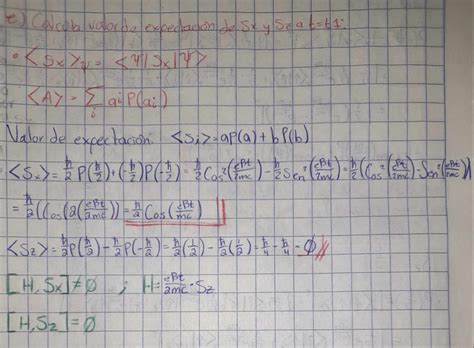 e) Calcula valor de expectación de Sx y Sz a t=t1:
• <Sx>ψ = <Ψ|Sx|Ψ>
<A> = Σi ai P(ai)
Valor de expectación: <Si> = aP(a) + bP(b)
<Sx> = ħ/2 P(ħ/2) + (-ħ/2)P(-ħ/2) = ħ/2 Cos²(eBt/2mc) - ħ/2 Sen²(eBt/2mc) = ħ/2 (Cos²(eBt/2mc) - Sen²(eBt/2mc))
= ħ/2 (Cos(2(eBt/2mc))) = ħ/2 Cos(eBt/mc)
<Sz> = ħ/2 P(ħ/2) - ħ/2 P(-ħ/2) = ħ/2(1/2) - ħ/2(1/2) = ħ/4 - ħ/4 = ∅
[H, Sx] ≠ ∅ ; H = eBt/2mc · Sz
[H, Sz] = ∅